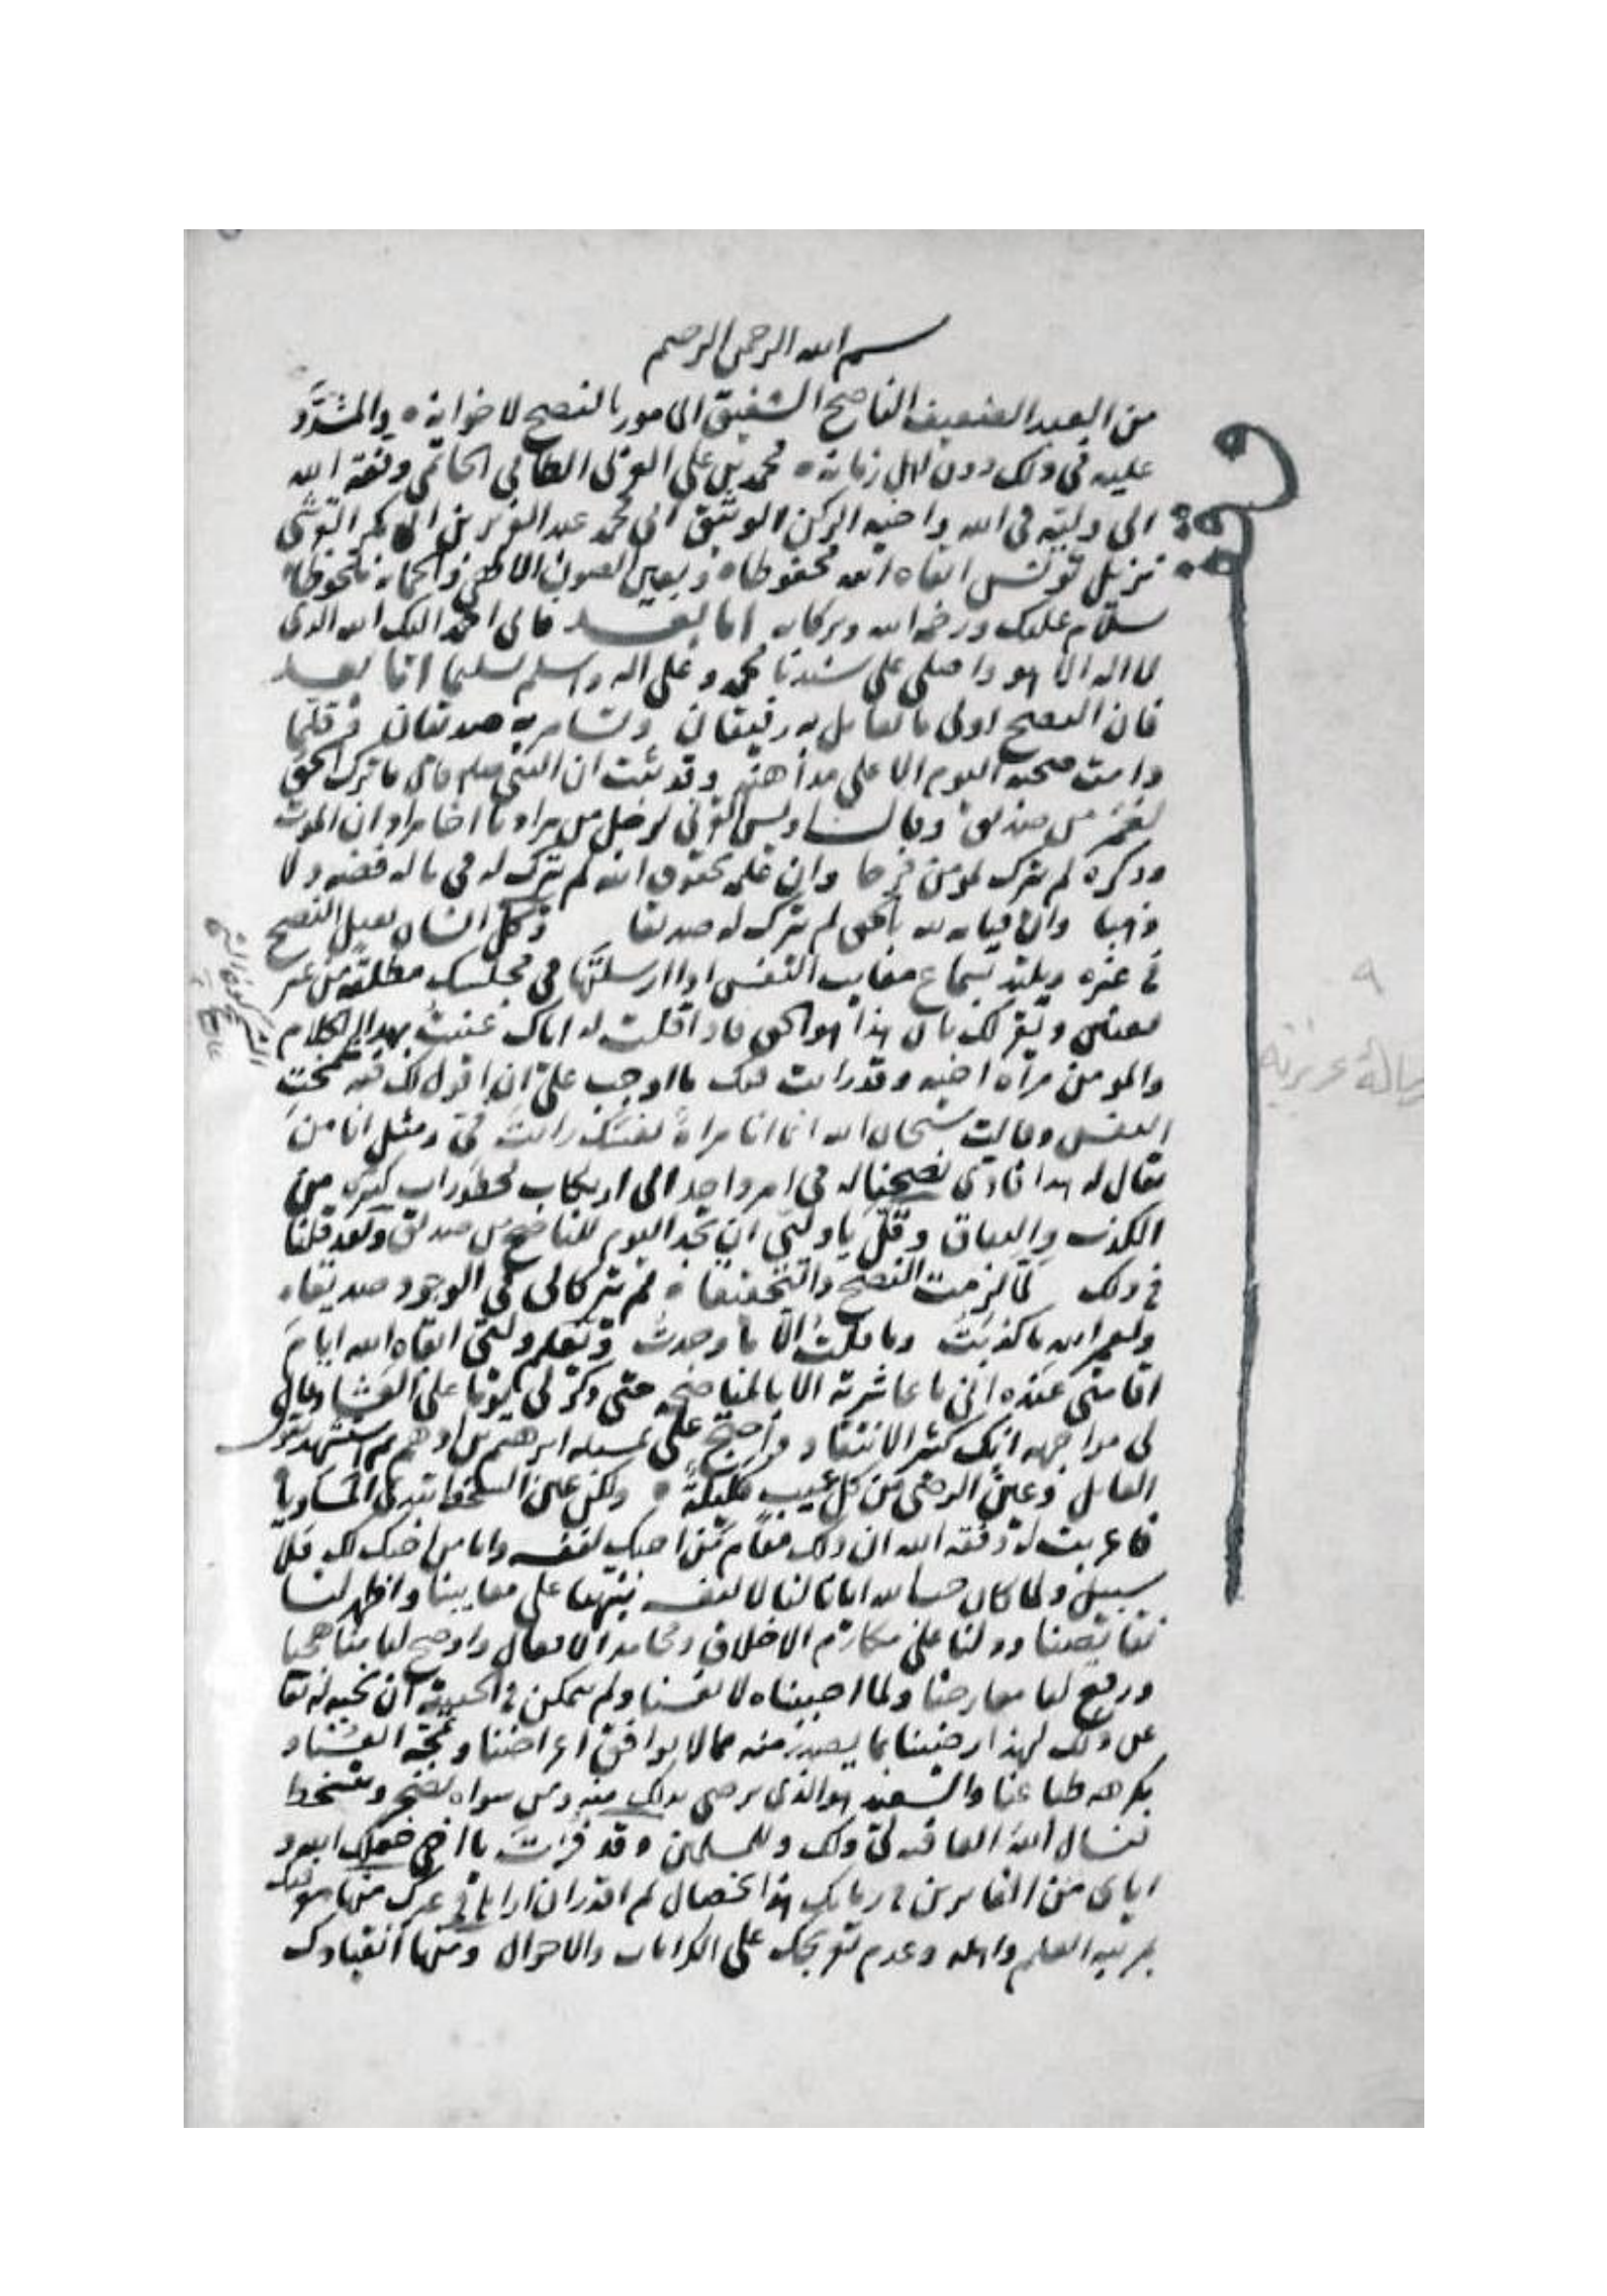 بسم الله الرحمن الرحيم
من العبد الضعيف الناصح الشفيق المامور بالنصح لاخوانه والمشدد
عليه في ذلك دون اهل زمانه محمد بن علي العربي الطائي الحاتمي وفقه الله
الى وليه في الله واخيه الركن الوثيق ابي محمد عبد العزيز بن ابي بكر القرشي
نزيل تونس ابقاه الله محفوظا وبعين الصون الالهي والحماية ملحوظا
سلام عليك ورحمة الله وبركاته اما بعد فاني احمد اليك الله الذي
لا اله الا هو واصلي على سيدنا محمد وعلى اله وسلم تسليما اما بعد
فان النصح اولى ما تعامل به رفيقان وتسامر به صديقان وقلما
دامت صحبة اليوم الا على مداهنة وقد ثبت ان النبي صلعم قال ما ترك الحق
لعمر من صديق وقال اويس القرني لرجل من مراد يا اخا مراد ان الموت
وذكره لم يترك لمومن فرحا وان علمه بحقوق الله لم يترك له في ماله فضة ولا
ذهبا وان قيامه لله بالحق لم يترك له صديقا وكل انسان يقبل النصح
في غيره ويلتذ بسماع معايب النفس اذا ارسلتها في مجلسك مطلقة من غير
تعيين ويقر لك بان هذا هو الحق فاذا قلت له اياك عنيت بهذا الكلام
والمومن مرآة اخيه وقد رايت فيك ما اوجب علي ان اقول لك فيه شمخت
النفس وقالت سبحان الله انما انا مرآة نفسك رايت في ومثلي انا من
يقال له هذا فادى نصحنا له في امر واحد الى ارتكاب محظورات كثيرة من
الكذب والنفاق وقل يا وليي ان تجد اليوم للناصح من صديق ولقد قلنا
في ذلك لما لزمت النصح والتحقيقا لم يتركا لي في الوجود صديقا
ولعمر الله ما كذبت وما قلت الا ما وجدت وتعلم وليي ابقاه الله ايام
اقامتي عنده اني ما عاشرته الا بالمناصحة حتى ذكر لي يوما على العشا وقال
لي مواجهة انك كثير الانتقاد واحتج علي بمسلة ابرهيم بن ادهم ثم استشهد بقول
القايل وعين الرضى عن كل عيب كليلة ولكن عين السخط تبدي المساويا
فاعربت له وفقه الله ان ذلك مقام من احبك لنفسه واما من احبك لك فلا
سبيل ولما كان حب الله ايانا لنا لا لنفسه نبهنا على معايبنا واظهر لنا
نقايصنا ودلنا على مكارم الاخلاق ومحامد الافعال واوضح لنا مناهجها
ورفع لنا معارجها ولما احببناه لانفسنا ولم يتمكن في الحقيقة ان نحبه له تعا
عن ذلك لهذا رضينا بما يصدر منه مما لا يوافق اغراضنا وتمجه انفسنا و
يكرهه طباعنا والسعيد هو الذي يرضى بذلك منه ومن سواه يضجر ويتسخط
نسال الله العافية لي ولك وللمسلمين وقد فزت يا اخي
من في زمانك بهذه الخصال لم اقدر ان اراها في غيرك منها معرفتك
بمرتبة العلم واهله وعدم تعريجك على الكرامات والاحوال ومنها انقيادك
رسالة عزيزية
٩